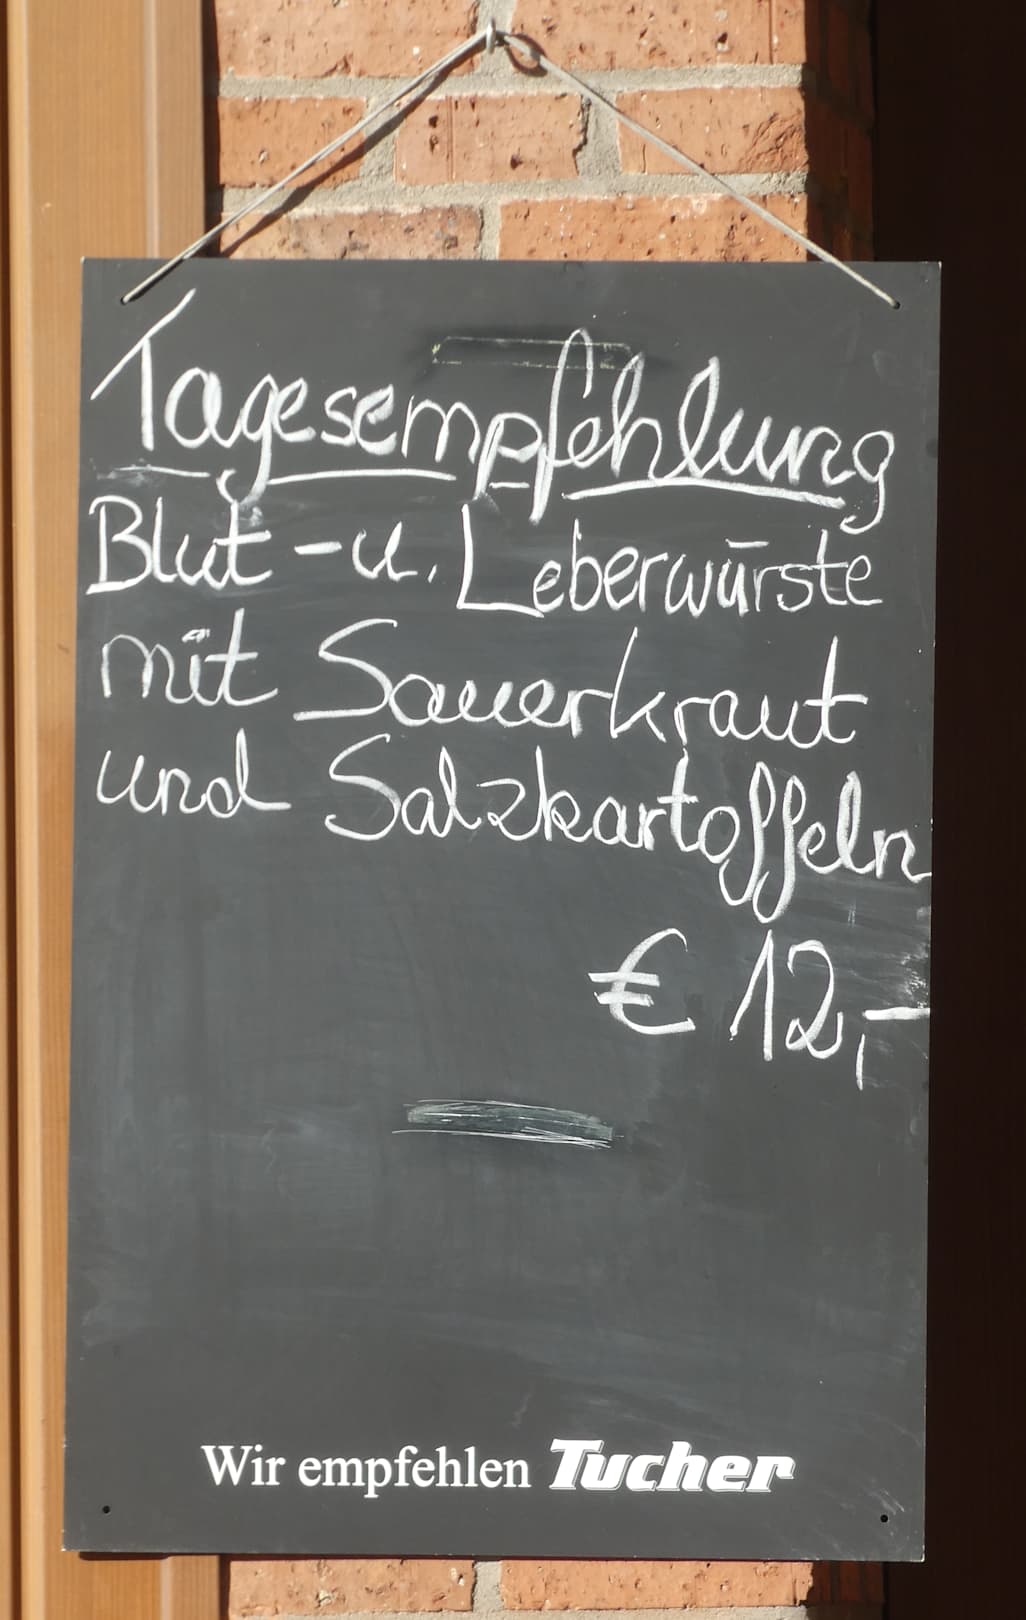 Tagesempfehlung
Blut - u. Leberwürste
mit Sauerkraut
und Salzkartoffeln
€ 12,-
Wir empfehlen Tucher